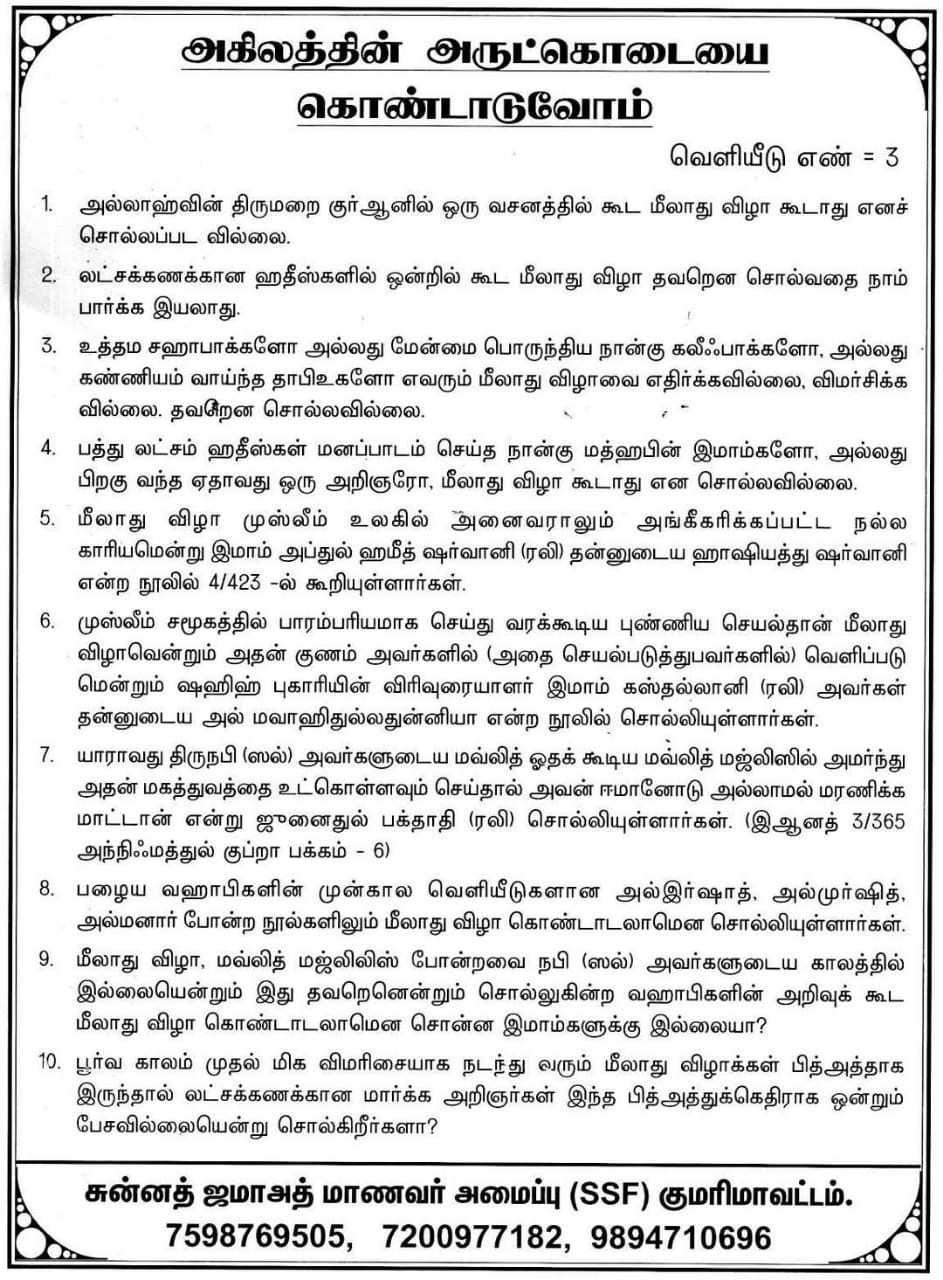 அகிலத்தின் அருட்கொடையை
கொண்டாடுவோம்
வெளியீடு எண் = 3
1. அல்லாஹ்வின் திருமறை குர்ஆனில் ஒரு வசனத்தில் கூட மீலாது விழா கூடாது எனச்
சொல்லப்பட வில்லை.
2. லட்சக்கணக்கான ஹதீஸ்களில் ஒன்றில் கூட மீலாது விழா தவறென சொல்வதை நாம்
பார்க்க இயலாது.
3. உத்தம சஹாபாக்களோ அல்லது மேன்மை பொருந்திய நான்கு கலீஃபாக்களோ, அல்லது
கண்ணியம் வாய்ந்த தாபிஉகளோ எவரும் மீலாது விழாவை எதிர்க்கவில்லை, விமர்சிக்க
வில்லை. தவறேன சொல்லவில்லை.
4. பத்து லட்சம் ஹதீஸ்கள் மனப்பாடம் செய்த நான்கு மத்ஹபின் இமாம்களோ, அல்லது
பிறகு வந்த ஏதாவது ஒரு அறிஞரோ, மீலாது விழா கூடாது என சொல்லவில்லை.
5. மீலாது விழா முஸ்லீம் உலகில் அனைவராலும் அங்கீகரிக்கப்பட்ட நல்ல
காரியமென்று இமாம் அப்துல் ஹமீத் ஷர்வானி (ரலி) தன்னுடைய ஹாஷியத்து ஷர்வானி
என்ற நூலில் 4/423 -ல் கூறியுள்ளார்கள்.
6. முஸ்லீம் சமூகத்தில் பாரம்பரியமாக செய்து வரக்கூடிய புண்ணிய செயல்தான் மீலாது
விழாவென்றும் அதன் குணம் அவர்களில் (அதை செயல்படுத்துபவர்களில்) வெளிப்படு
மென்றும் ஷஹிஹ் புகாரியின் விரிவுரையாளர் இமாம் கஸ்தல்லானி (ரலி) அவர்கள்
தன்னுடைய அல் மவாஹிதுல்லதுன்னியா என்ற நூலில் சொல்லியுள்ளார்கள்.
7. யாராவது திருநபி (ஸல்) அவர்களுடைய மவ்லித் ஓதக் கூடிய மவ்லித் மஜ்லிஸில் அமர்ந்து
அதன் மகத்துவத்தை உட்கொள்ளவும் செய்தால் அவன் ஈமானோடு அல்லாமல் மரணிக்க
மாட்டான் என்று ஜுனைதுல் பக்தாதி (ரலி) சொல்லியுள்ளார்கள். (இஆனத் 3/365
அந்நிஃமத்துல் குப்றா பக்கம் - 6)
8. பழைய வஹாபிகளின் முன்கால வெளியீடுகளான அல்இர்ஷாத், அல்முர்ஷித்,
அல்மனார் போன்ற நூல்களிலும் மீலாது விழா கொண்டாடலாமென சொல்லியுள்ளார்கள்.
9. மீலாது விழா, மவ்லித் மஜ்லிலிஸ் போன்றவை நபி (ஸல்) அவர்களுடைய காலத்தில்
இல்லையென்றும் இது தவறெனென்றும் சொல்லுகின்ற வஹாபிகளின் அறிவுக் கூட
மீலாது விழா கொண்டாடலாமென சொன்ன இமாம்களுக்கு இல்லையா?
10. பூர்வ காலம் முதல் மிக விமரிசையாக நடந்து வரும் மீலாது விழாக்கள் பித்அத்தாக
இருந்தால் லட்சக்கணக்கான மார்க்க அறிஞர்கள் இந்த பித்அத்துக்கெதிராக ஒன்றும்
பேசவில்லையென்று சொல்கிறீர்களா?
சுன்னத் ஜமாஅத் மாணவர் அமைப்பு (SSF) குமரிமாவட்டம்.
7598769505, 7200977182, 9894710696